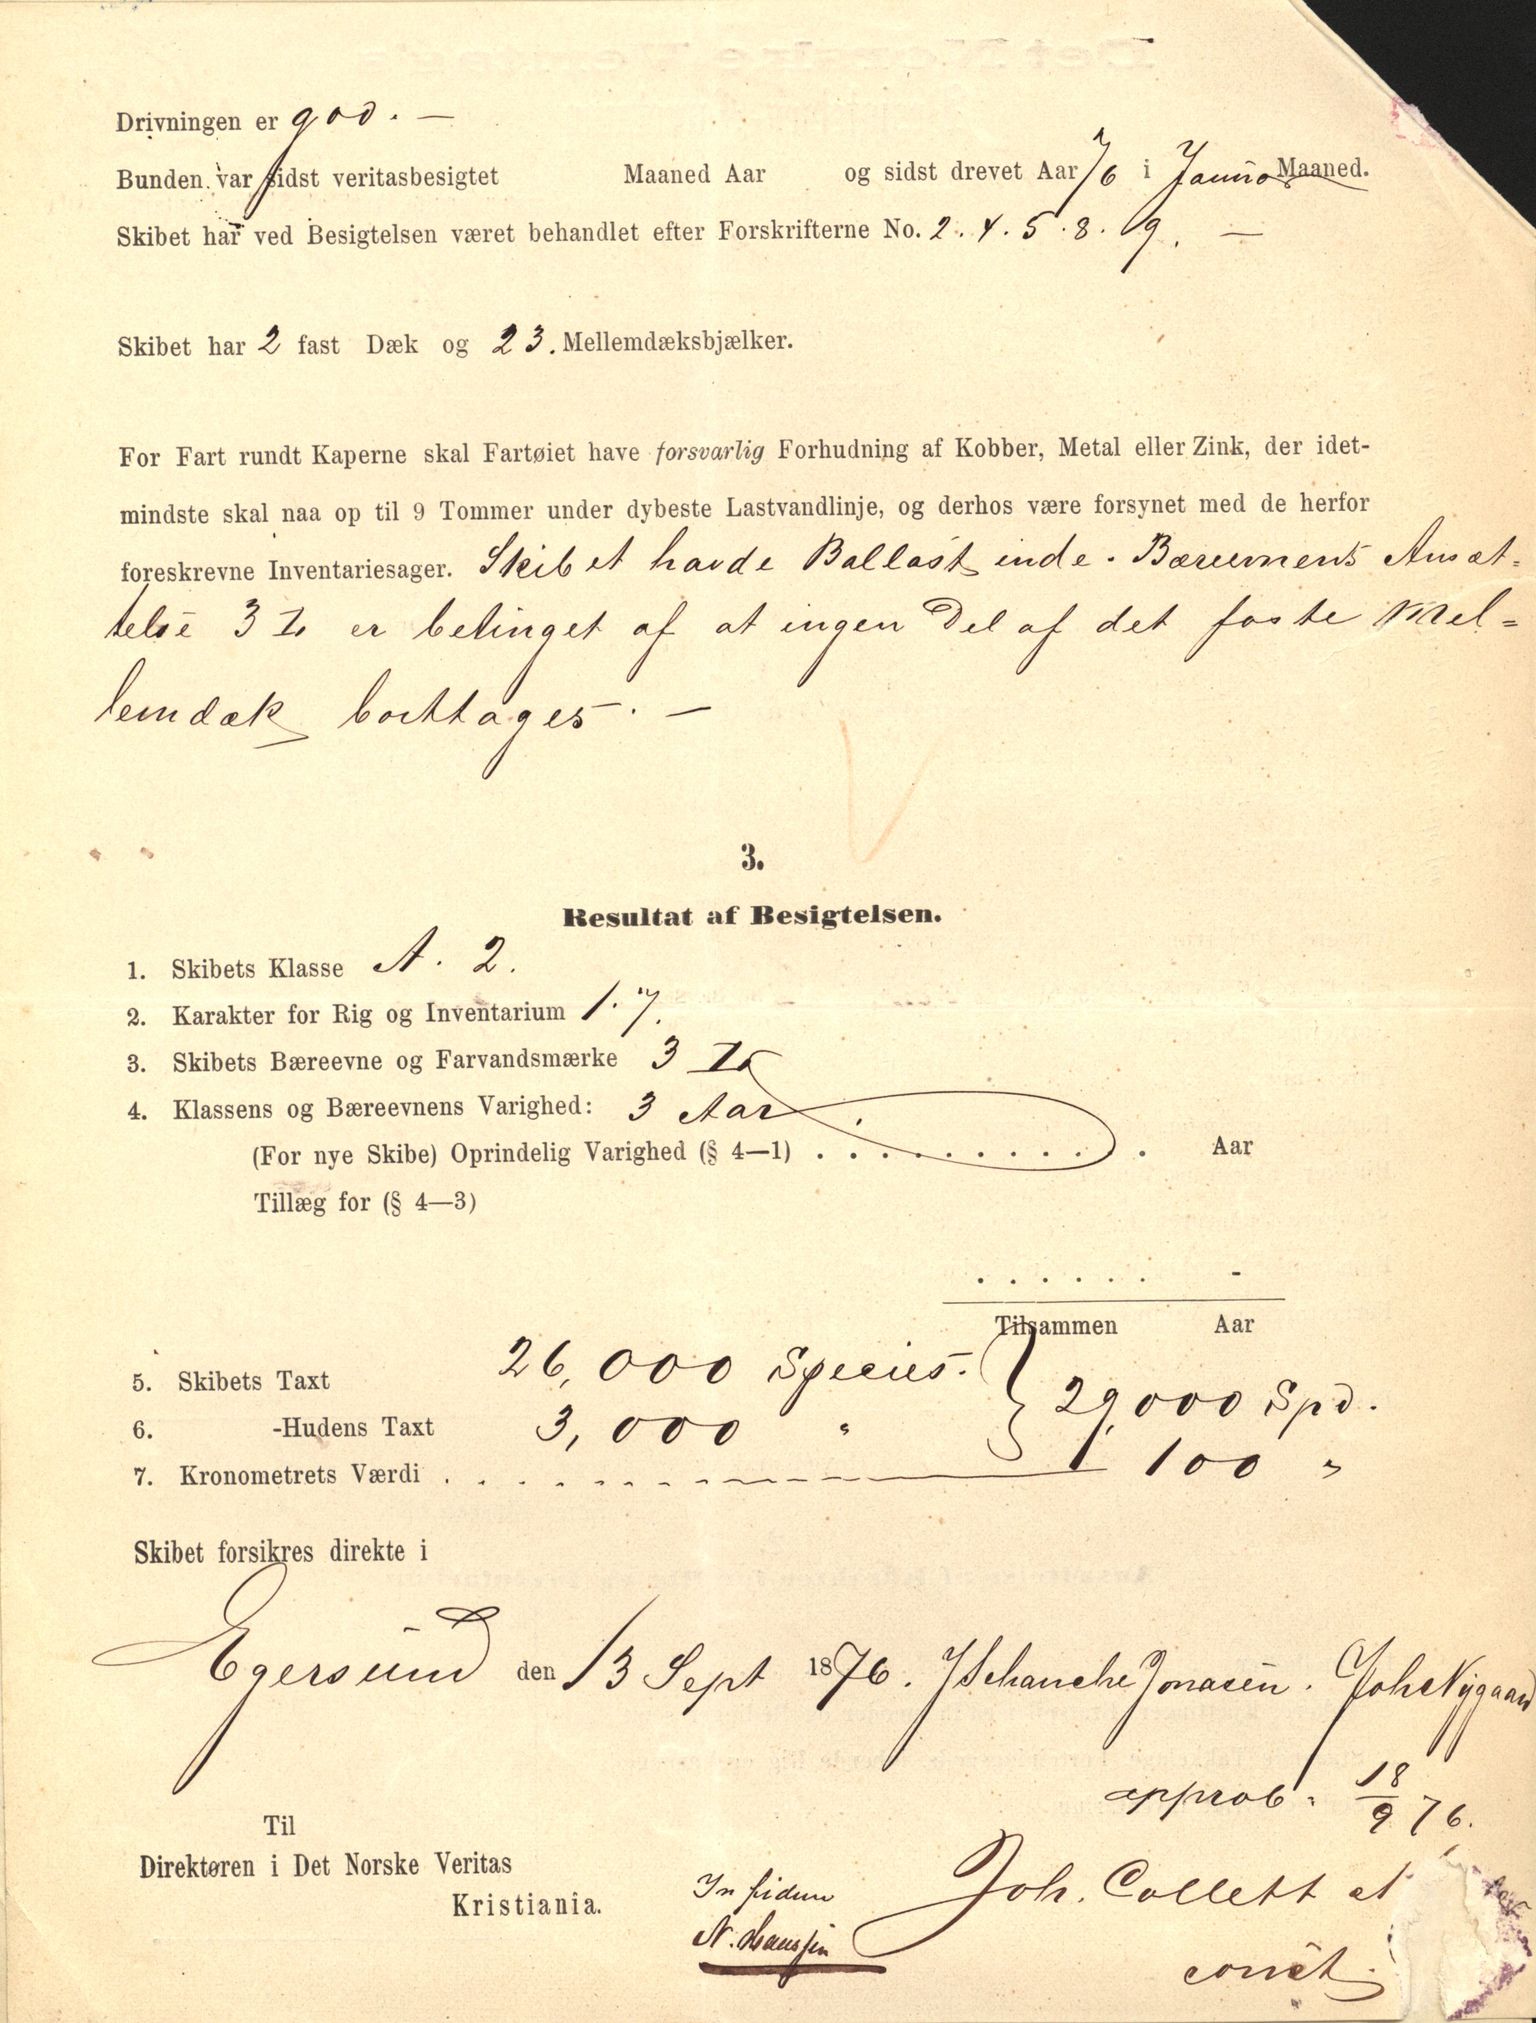 Drivningen er god. —
Bunden var sidst veritasbesigtet Maaned Aar og sidst drevet Aar 76 i Januar Maaned.
Skibet har ved Besigtelsen været behandlet efter Forskrifterne No. 2. 4. 5. 8. 9. —
Skibet har 2 fast Dæk og 23. Mellemdæksbjælker.
For Fart rundt Kaperne skal Fartøiet have forsvarlig Forhudning af Kobber, Metal eller Zink, der idet-
mindste skal naa op til 9 Tommer under dybeste Lastvandlinje, og derhos være forsynet med de herfor
foreskrevne Inventariesager. Skibet havde Ballast inde. Bæreevnens Ansæt=
telse 3 I er betinget af at ingen Del af det faste Mel=
lemdæk borttages. —
3.
Resultat af Besigtelsen.
1. Skibets Klasse A. 2.
2. Karakter for Rig og Inventarium 1. 7.
3. Skibets Bæreevne og Farvandsmærke 3 I
4. Klassens og Bæreevnens Varighed: 3 Aar
(For nye Skibe) Oprindelig Varighed (§ 4—1) . . . . . . . . . . Aar
Tillæg for (§ 4—3)
. . . . . . -
Tilsammen Aar
5. Skibets Taxt 26,000 Species. } 29,000 Spd.
6. -Hudens Taxt 3,000 "
7. Kronometrets Værdi . . . . . . 100 "
Skibet forsikres direkte i
Egersund den 13 Sept 1876. J Schanche Jonasen. Joh Nygaard
approb. 18/9 76.
Til
Direktøren i Det Norske Veritas
Kristiania.
In fidem
N. Hanssen
Joh. Collett
const.